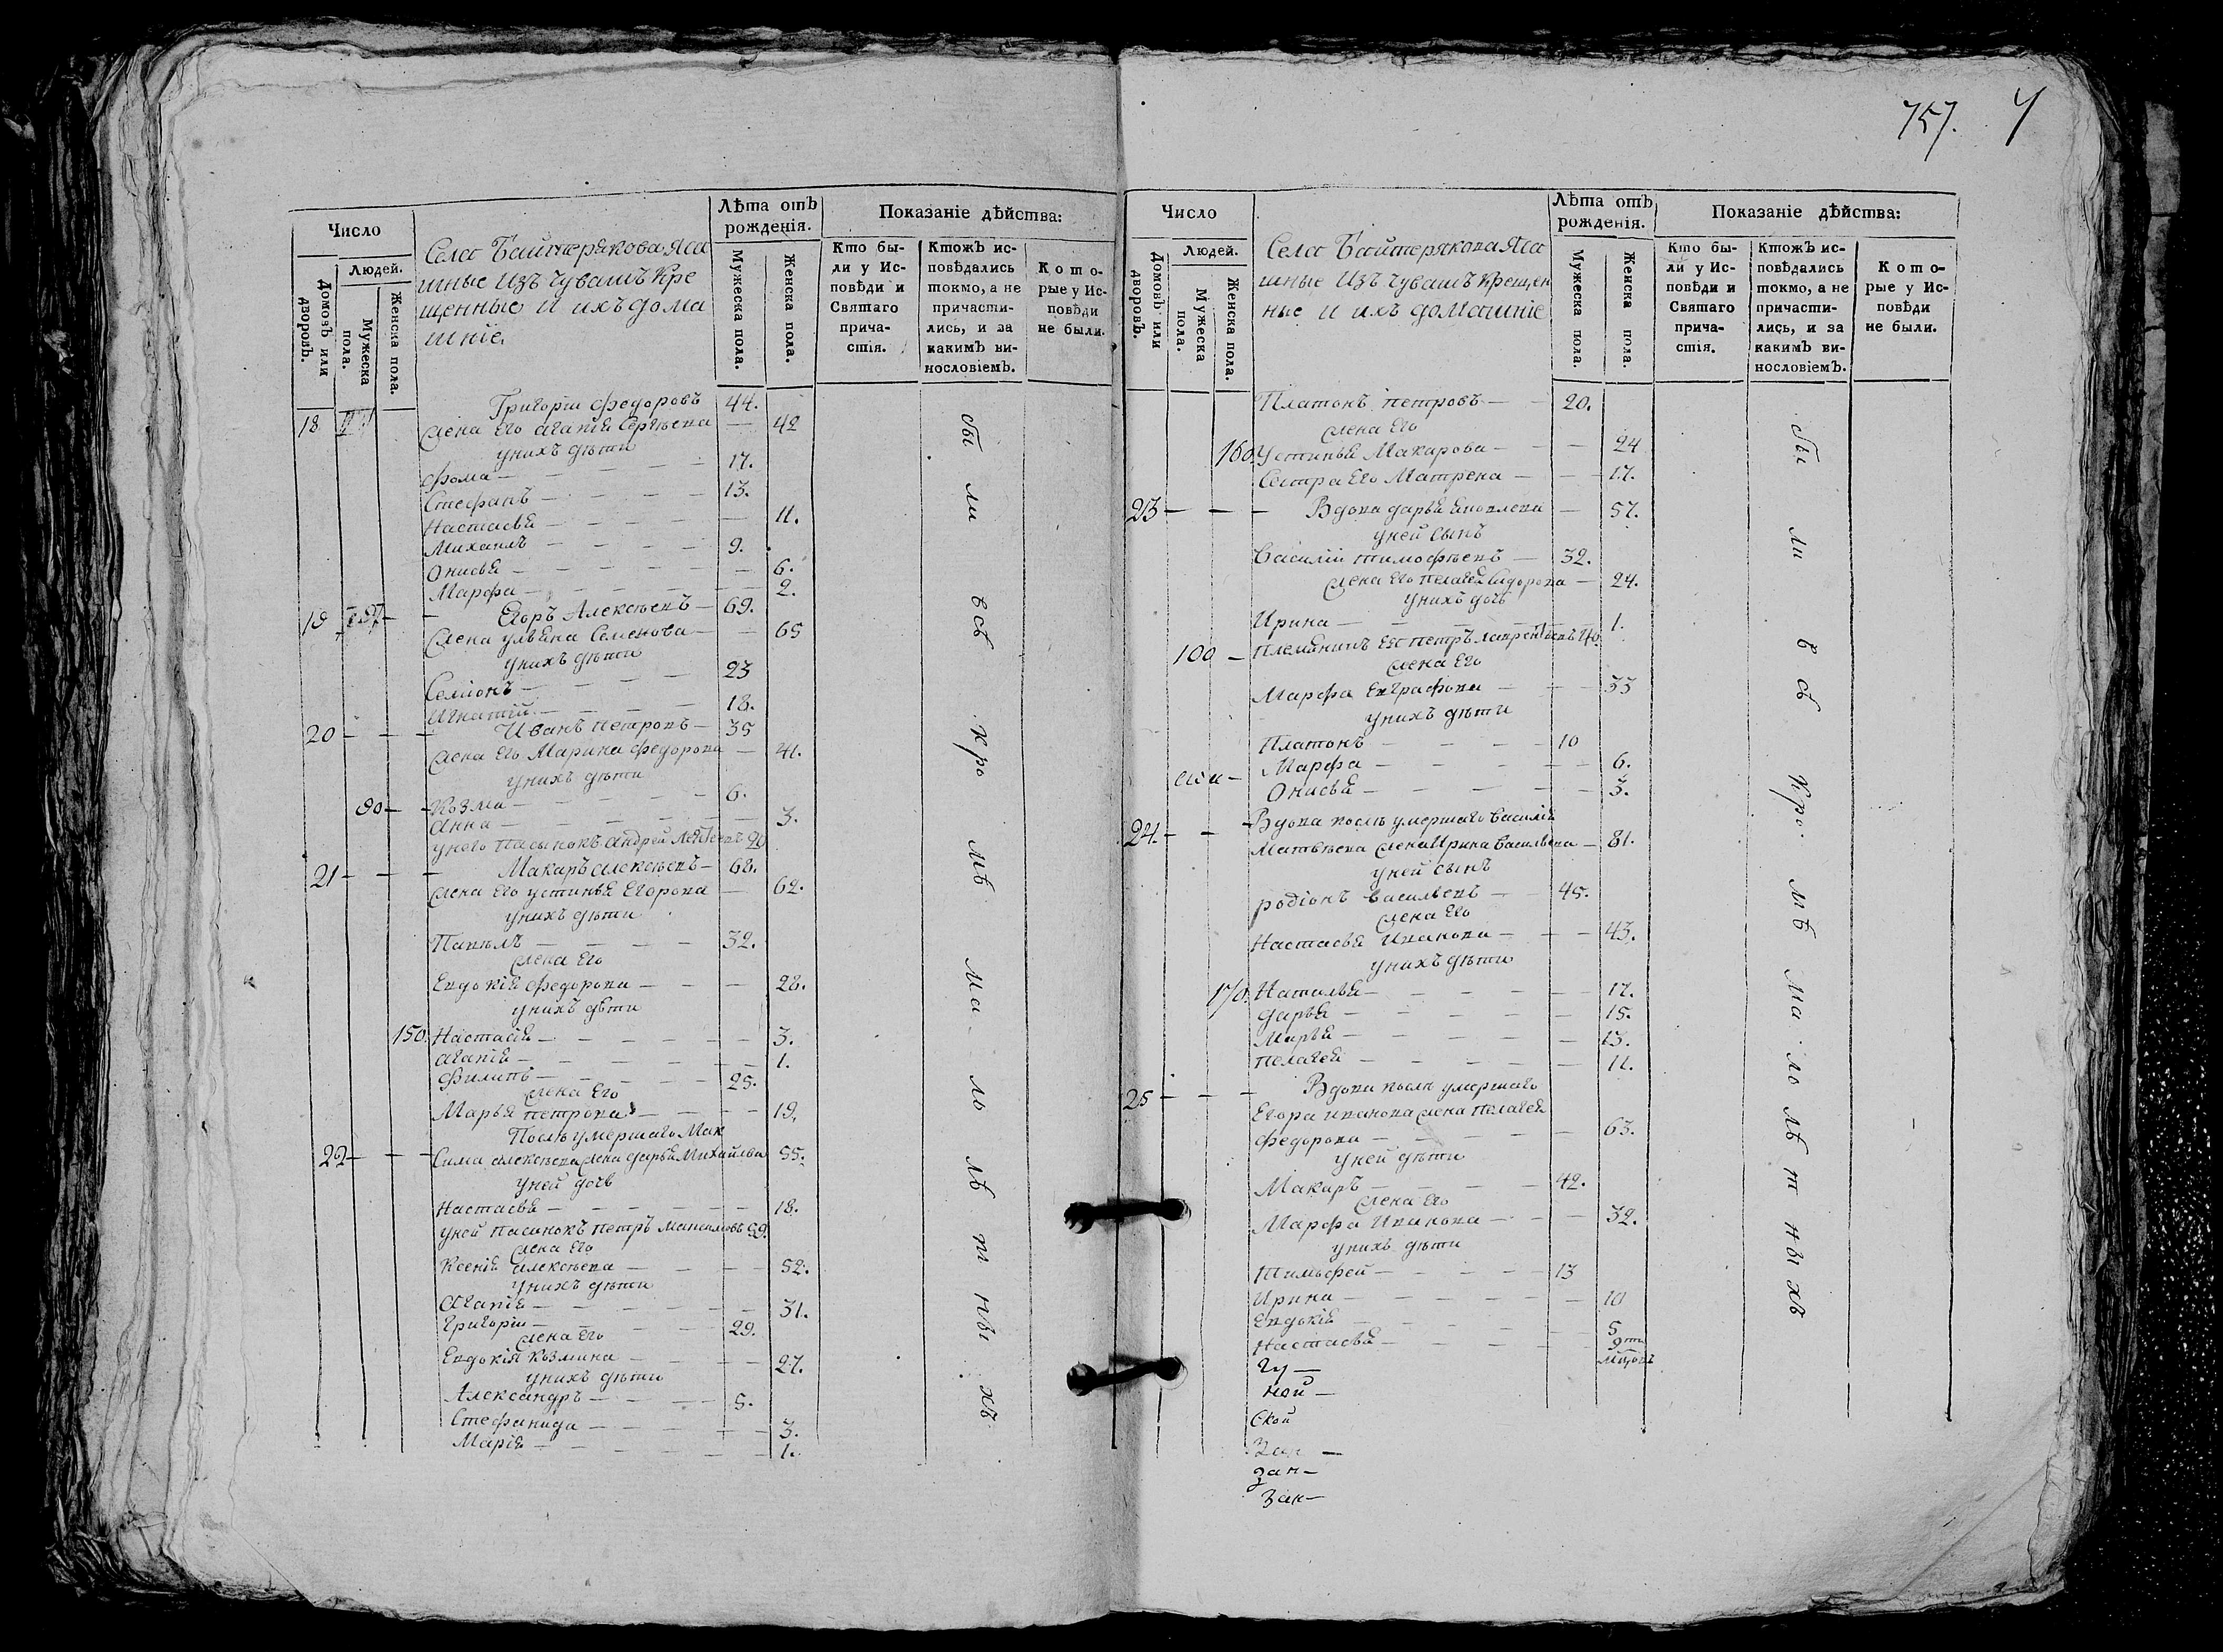 757. 4
Число
Людей.
Домовъ или дворовъ.
Мужеска пола.
Женска пола.
Села Байтерякова Яса
шные Изъ Чувашъ Кре
щенные И ихъ дома
шніе.
Лѣта отъ рожденія.
Мужеска пола.
Женска пола.
Показаніе дѣйства:
Кто бы-
ли у Ис-
повѣди и
Святаго
прича-
стія.
Ктожъ ис-
повѣдались
токмо, а не
причасти-
лись, и за
какимъ ви-
нословіемъ.
Кото-
рые у Ис-
повѣди
не были.
Григоріи Федоровъ 44.
18 жена Его Агапія Сергѣева — 42
унихъ дѣти
Фома — 17.
Стефанъ — 13.
Настасья — 11.
Михаилъ — 9.
Онисья — 6.
Марфа — 2.
19 Егоръ Алексѣевъ — 69.
жена ульяна Семенова — 65
унихъ дѣти
Семіонъ — 23
Игнатій — 18.
20 — Иванъ Петровъ — 35
жена Его Марина Федорова — 41.
унихъ дѣти
90 — Козма — 6.
Анна — 3.
унего Пасынокъ Андрей 20
21 — Макаръ Алексѣевъ — 68.
жена Его устинья Егорова — 62.
унихъ дѣти
Павелъ — 32.
жена Его
Евдокія Федорова — 28.
унихъ дѣти
150. Настасія — 3.
Агапія — 1.
Филипъ — 25.
жена Его
Марья петрова — 19.
Послѣ умершаго Мак
22 — Сима Алексѣева жена дарья Михайлва 55.
уней дочь
Настасья — 18.
уней пасынокъ Петръ Максимовъ 59.
жена Его
Ксенія Алексѣева — 52.
унихъ дѣти
Агапія — 31.
Григоріи — 29.
жена Его
Евдокія козмина — 27.
унихъ дѣти
Александръ — 5.
Стефанида — 3.
Марія — 1.
бы ли всѣ кро мѣ ма ло лѣ т ны хъ
Число
Людей.
Домовъ или дворовъ.
Мужеска пола.
Женска пола.
Села Байтерякова Яса
шные Изъ Чувашъ Крещен
ные И ихъ домашніе
Лѣта отъ рожденія.
Мужеска пола.
Женска пола.
Показаніе дѣйства:
Кто бы-
ли у Ис-
повѣди и
Святаго
прича-
стія.
Ктожъ ис-
повѣдались
токмо, а не
причасти-
лись, и за
какимъ ви-
нословіемъ.
Кото-
рые у Ис-
повѣди
не были.
Платонъ петровъ — 20.
жена Его
160. Устинья Макарова — 24
Сестра Его Матрена — 17.
23 — Вдова дарья Яковлева — 57.
уней сынъ
Василій тимофѣевъ — 32.
жена Его пелагея Сидорова — 24.
унихъ дочь
Ирина — 1.
100 — племянникъ Его петръ лаврентьевъ 40.
жена Его
Марфа Евграфова — 33
унихъ дѣти
Платонъ — 10
Марфа — 6.
Онисья — 3.
24. — Вдова послѣ умершаго Василія
Матвѣева жена Ирина Васильева — 81.
уней сынъ
родіонъ Васильевъ — 45.
жена Его
Настасья Иванова — 43.
унихъ дѣти
170. Наталья — 17.
дарья — 15.
Марья — 13.
пелагея — 11.
25 — Вдова послѣ умершаго
Егора иванова жена Пелагея
Федорова — 63.
уней дѣти
Макаръ — 42.
жена Его
Марфа Иванова — 32.
унихъ дѣти
Тимофей — 13
Ирина — 10
Евдокія — 5
Настасья — 9ти
мцовъ
Чу —
ной —
Ской
зан —
Зак —
бы ли всѣ кро мѣ ма ло лѣ т ны хъ